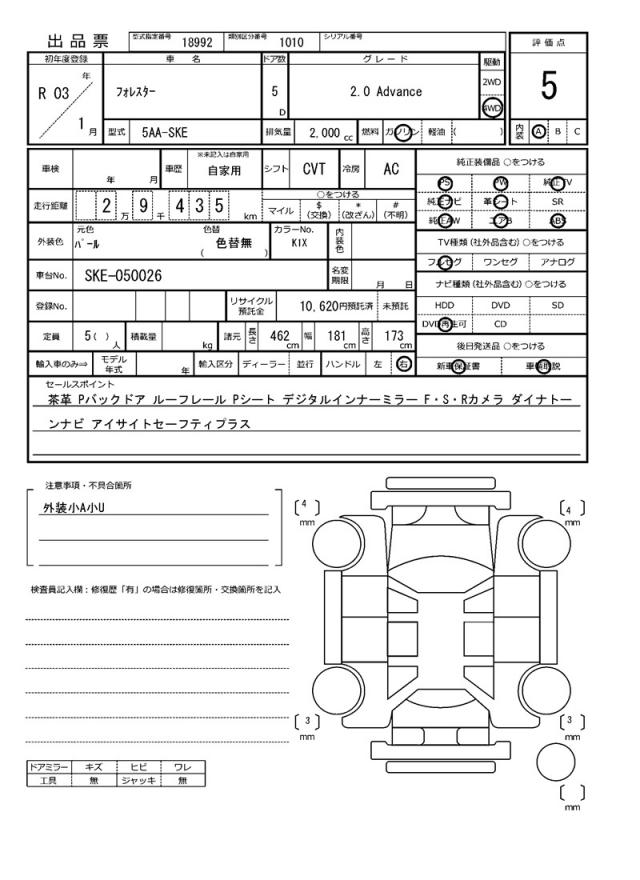 出品票 型式指定番号 18992 類別区分番号 1010 シリアル番号
評価点
5
初年度登録 車名 ドア数 グレード 駆動
R 03 年 1 月
フォレスター
5 D
2.0 Advance
2WD
4WD
型式 5AA-SKE 排気量 2,000 cc 燃料 ガソリン 軽油 ( )
内装 A B C
車検 年 月 車歴 ※未記入は自家用 自家用 シフト CVT 冷房 AC
走行距離 2 万 9 千 4 3 5 km
○をつける
マイル $(交換) *(改ざん) #(不明)
外装色 元色 パール 色替 色替無 ( ) カラーNo. K1X 内装色
車台No. SKE-050026 名変期限 月 日
登録No. リサイクル預託金 10,620円預託済 未預託
定員 5( ) 人 積載量 kg 諸元 長さ 462 cm 幅 181 cm 高さ 173 cm
輸入車のみ⇒ モデル年式 年 輸入区分 ディーラー 並行 ハンドル 左 右
純正装備品 ○をつける
PS PW 純正TV
純正ナビ 革シート SR
純正AW エアB ABS
TV種類(社外品含む) ○をつける
フルセグ ワンセグ アナログ
ナビ種類(社外品含む) ○をつける
HDD DVD SD
DVD再生可 CD
後日発送品 ○をつける
新車保証書 車輌取説
セールスポイント
茶革 Pバックドア ルーフレール Pシート デジタルインナーミラー F・S・Rカメラ ダイナトー
ンナビ アイサイトセーフティプラス
注意事項・不具合箇所
外装小A小U
検査員記入欄:修復歴「有」の場合は修復箇所・交換箇所を記入
[4] mm
[4] mm
[3] mm
[3] mm
[ ] mm
ドアミラー キズ ヒビ ワレ
工具 無 ジャッキ 無